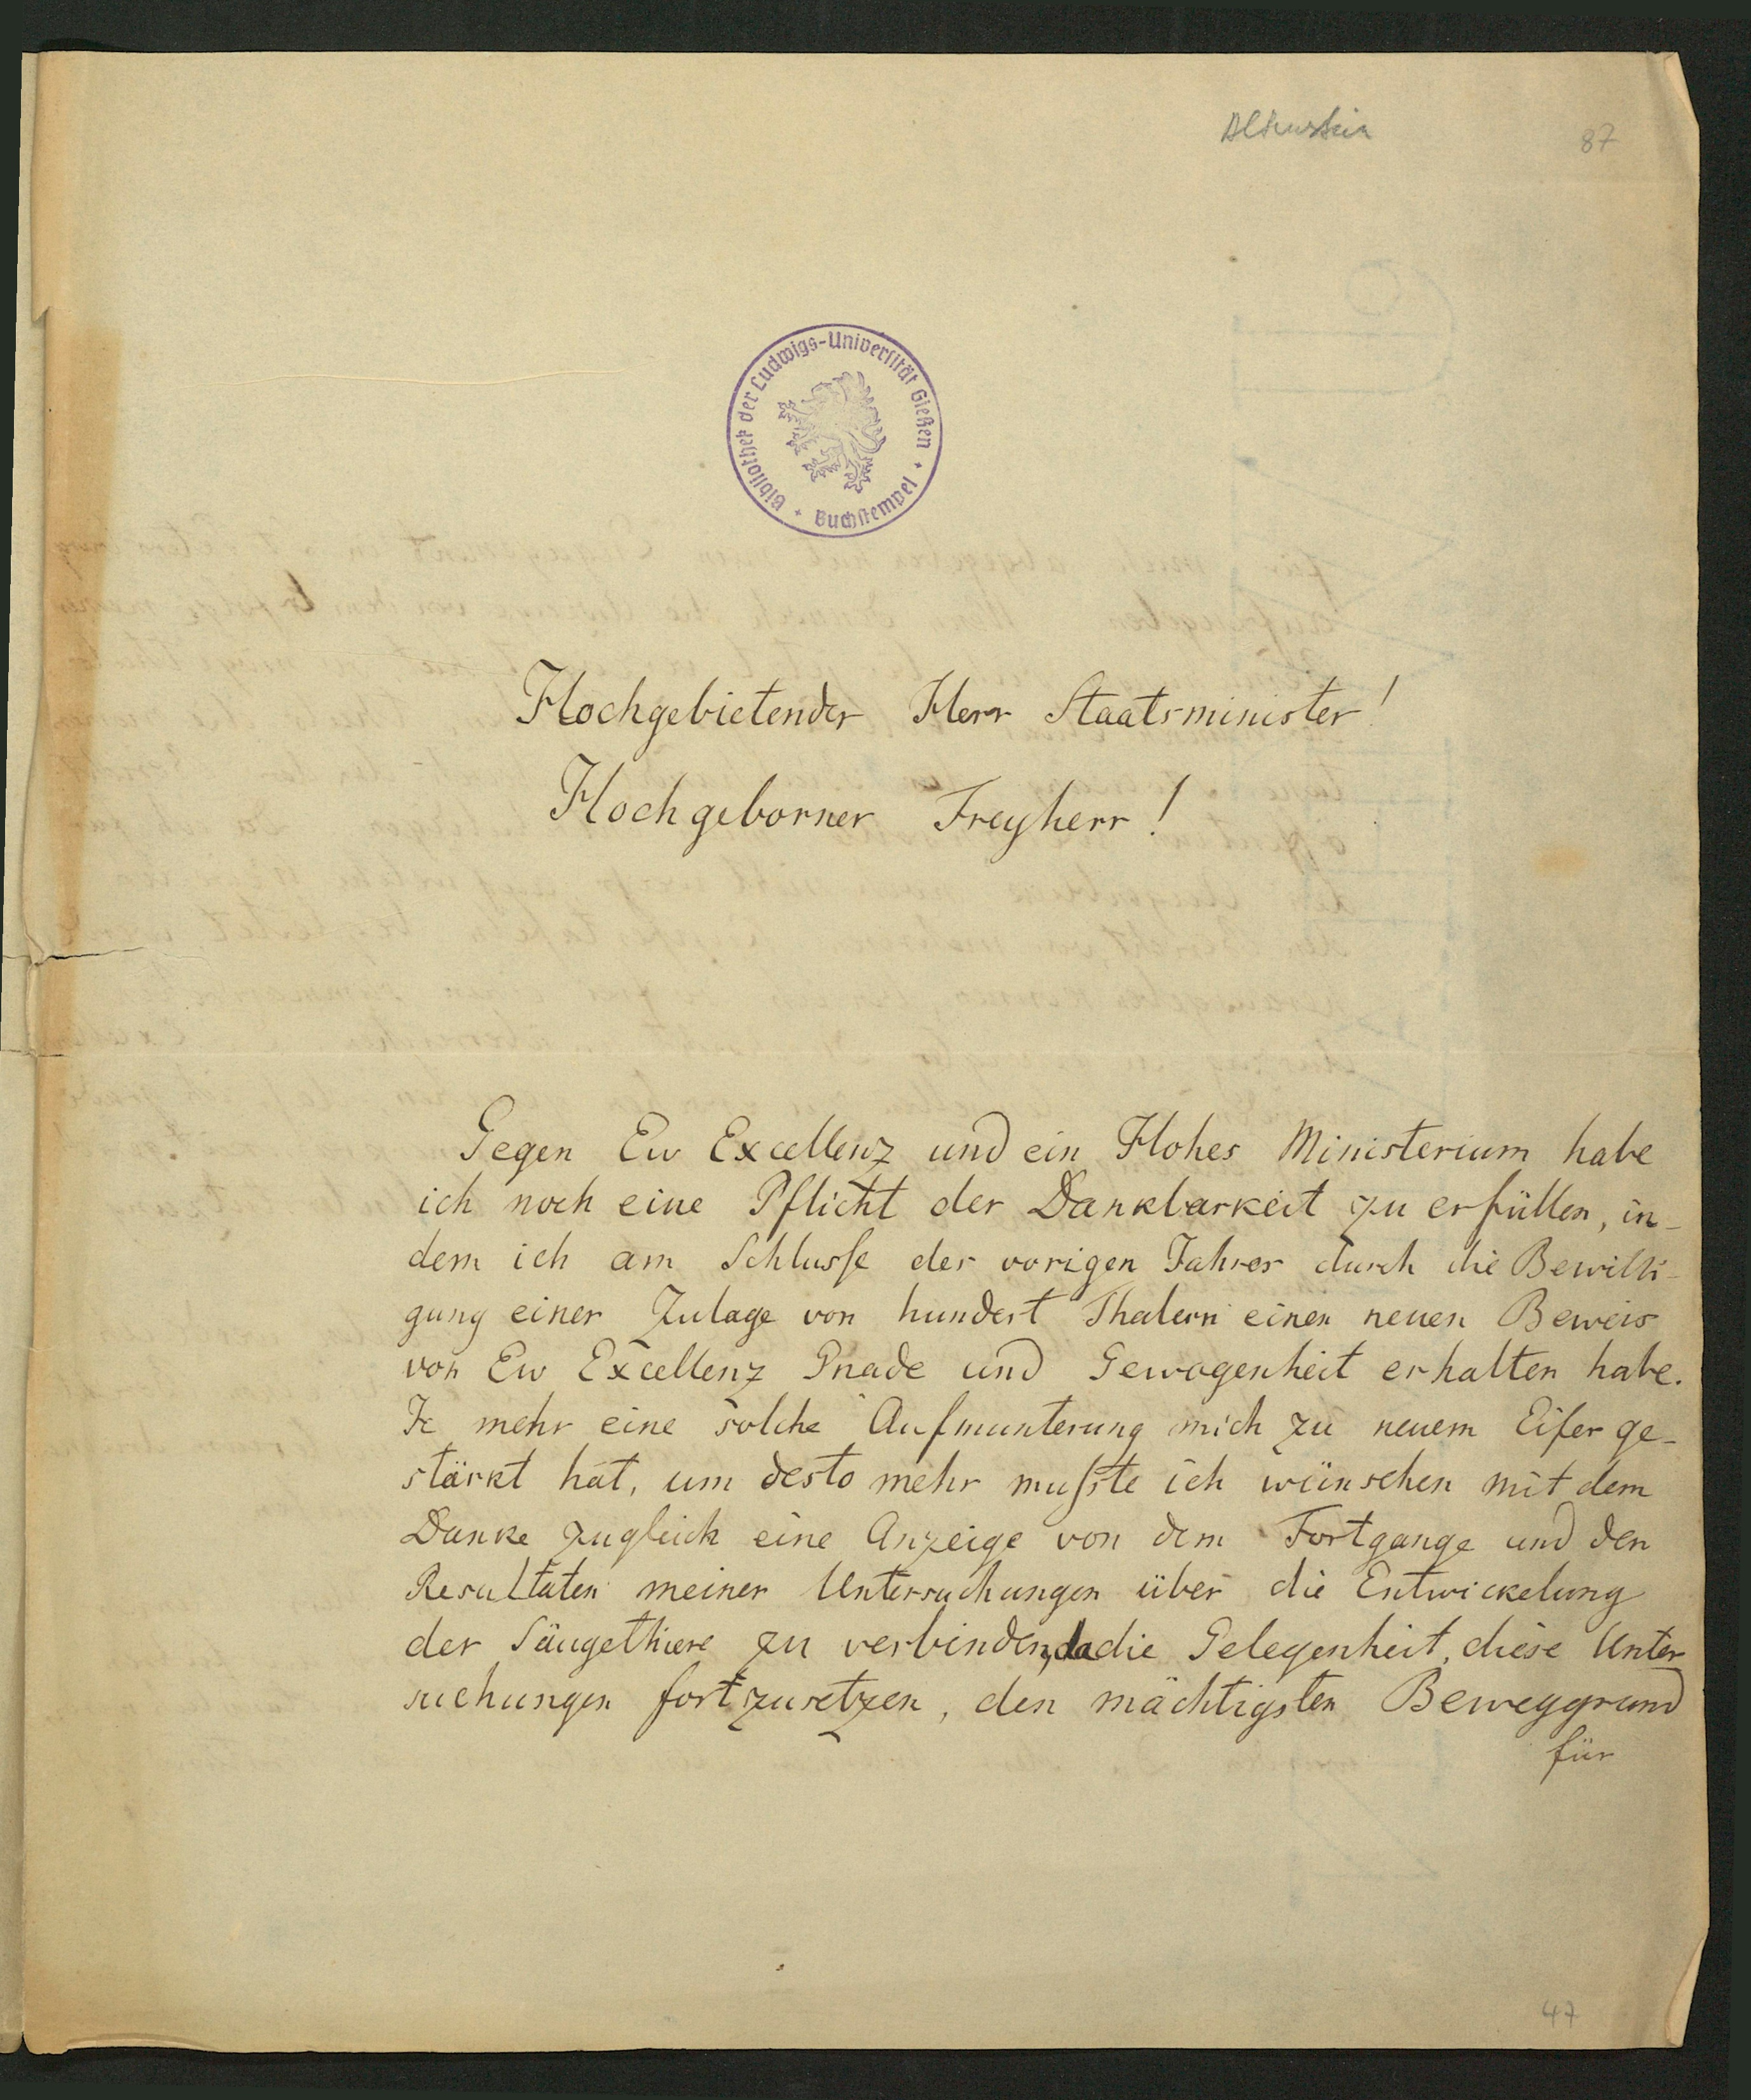 Altenstein
87
Bibliothek der Ludwigs-Universität Gießen
+ Buchstempel +
Hochgebietender Herr Staatsminister!
Hochgeborner Freyherr!
Gegen Ew Excellenz und ein Hohes Ministerium habe
ich noch eine Pflicht der Dankbarkeit zu erfüllen, in-
dem ich am Schlusse des vorigen Jahres durch die Bewilli-
gung einer Zulage von hundert Thalern einen neuen Beweis
von Ew Excellenz Gnade und Gewogenheit erhalten habe.
Je mehr eine solche Aufmunterung mich zu neuem Eifer ge-
stärkt hat, um desto mehr mußte ich wünschen mit dem
Danke zugleich eine Anzeige von dem Fortgange und den
Resultaten meiner Untersuchungen über die Entwickelung
der Säugethiere zu verbinden, da die Gelegenheit, diese Unter
suchungen fortzusetzen, den mächtigsten Beweggrund
für
47